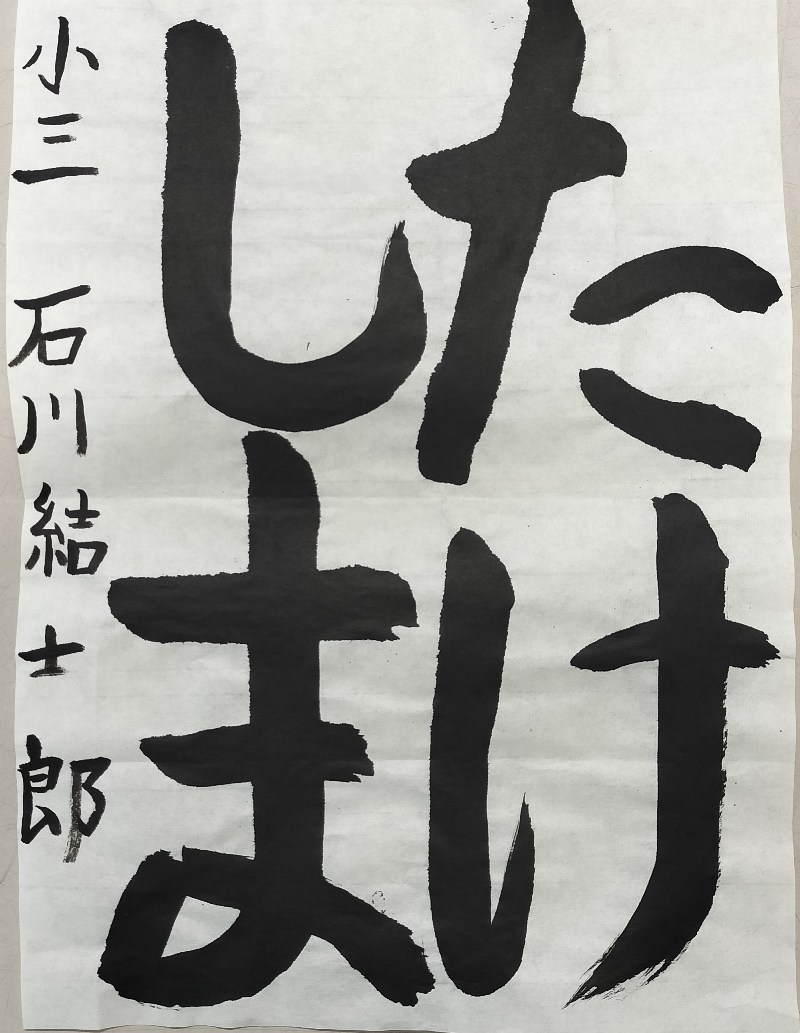 たけ
しま
小三 石川結士郎